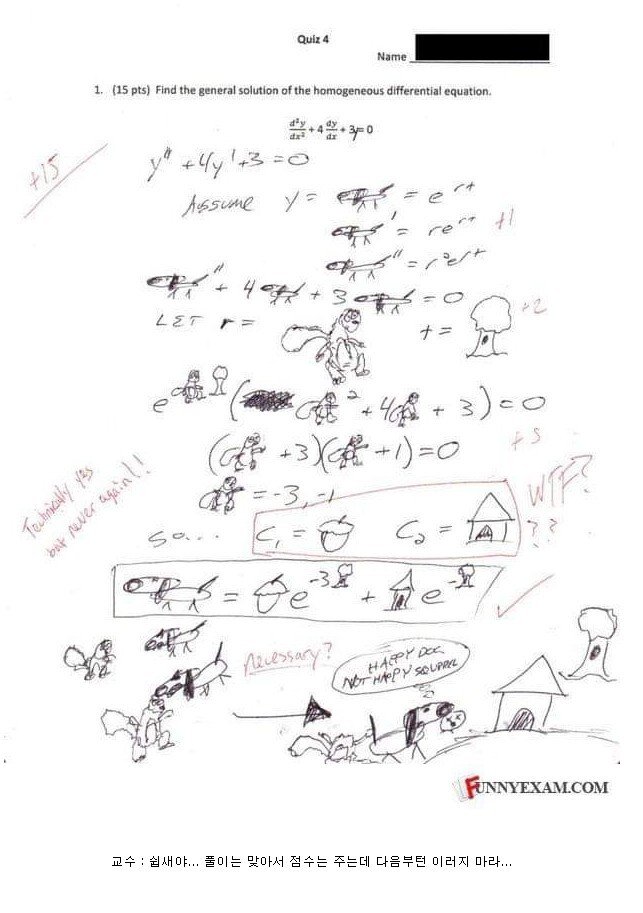 Quiz 4
Name
1. (15 pts) Find the general solution of the homogeneous differential equation.
d²y/dx² + 4 dy/dx + 3y = 0
+15
y" + 4y' + 3 = 0
Assume y = = e^rt
' = re^rt +1
" = r²e^rt
" + 4 ' + 3 = 0
LET r = t = +2
e ( ² + 4 + 3) = 0
( + 3)( + 1) = 0 +5
= -3, -1
Technically yes
but never again!!
WTF?
??
So... C₁ = C₂ =
= e^-3 + e^-
necessary?
HAPPY DOG
NOT HAPPY SQUIRREL
FUNNYEXAM.COM
교수 : 쉽새야... 풀이는 맞아서 점수는 주는데 다음부턴 이러지 마라...